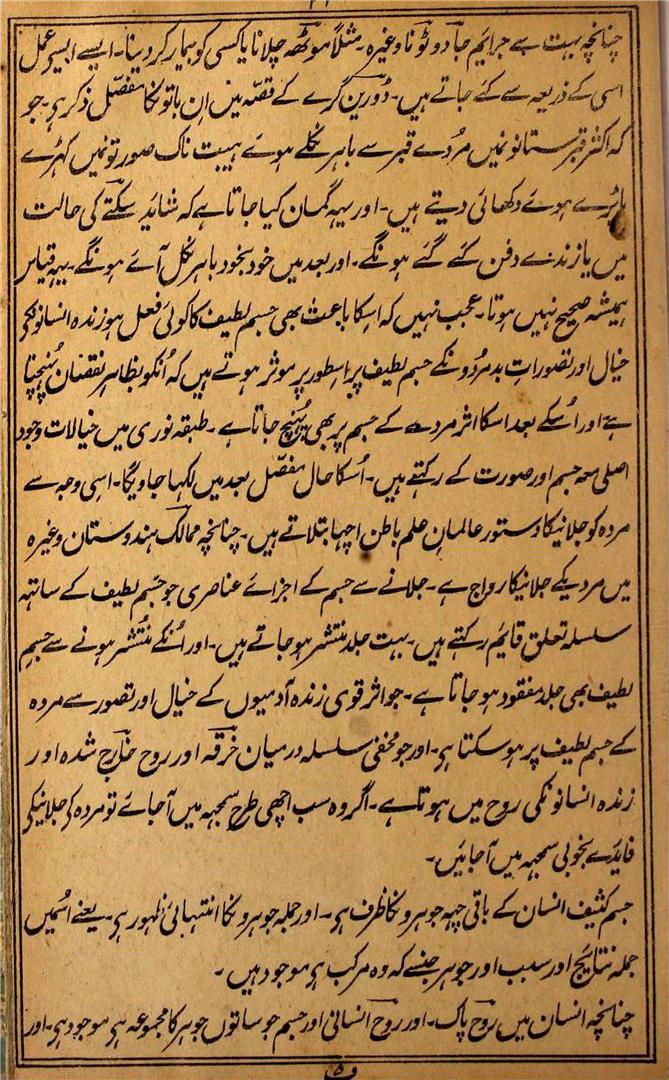 چنانچہ بہت سے جرایٔم جادو ٹونا وغیرہ مثلاً موٹھ چلانا یا کسی کو بیمار کر دینا۔ ایسے ایسے عمل
اسی کے ذریعہ سے کئے جاتے ہیں۔ ڈورین گرے کے قصّہ میں ان باتونکا مفصّل ذکر ہی۔ جو
کہ اکثر قبرستانونمیں مردے قبر سے باہر نکلے ہوئے ہیبت ناک صورتونمیں کھڑے
یا پڑے ہوئے دکھائی دیتے ہیں۔ اور یہہ گمان کیا جاتا ہے کہ شاید سکتے کی حالت
میں یا زندے دفن کئے گئے ہونگے۔ اور بعد میں خود بخود باہر نکل آئے ہونگے۔ یہہ قیاس
ہمیشہ صحیح نہیں ہوتا۔ عجب نہیں کہ اسکا باعث بھی جسم لطیف کا کوئی فعل ہو زندہ انسانونکی
خیال اور تصورات بد مردونکے جسم لطیف پر اسطور پر موثر ہوتے ہیں کہ اُنکو بظاہر نقصان پُہنچتا
ہے اور اُسکے بعد اسکا اثر مردے کے جسم پر بھی پُہنچ جاتا ہے۔ طبقہ نوری میں خیالات وجود
اصلی معہ جسم اور صورت کے رکہتے ہیں۔ اُسکا حال مفصّل بعد میں لکہا جاویگا۔ اسی وجہ سے
مردہ کو جلانیکا دستور عالمان علم باطن اچہا بتلاتے ہیں۔ چنانچہ ممالک ہندوستان وغیرہ
میں مردیکے جلانیکا رواج ہے۔ جلانے سے جسم کے اجزائے عناصری جو جسم لطیف کے ساتہہ
سلسلہ تعلق قایٔم رکہتے ہیں۔ بہت جلد منتشر ہو جاتے ہیں۔ اور اُنکے منتشر ہونے سے جسم
لطیف بھی جلد مفقود ہو جاتا ہے۔ جو اثر قوی زندہ آدمیوں کے خیال اور تصور سے مردہ
کے جسم لطیف پر ہو سکتا ہی۔ اور جو مخفی سلسلہ درمیان خرقہ اور روح خارج شدہ اور
زندہ انسانونکی روح میں ہوتا ہے۔ اگر وہ سب اچھی طرح سمجہہ میں آ جائے تو مردہ کی جلانیکی
فایٔدے بخوبی سمجہہ میں آ جایٔں۔
جسم کثیف انسان کے باقی چہہ جوہرونکا ظرف ہی۔ اور جملہ جوہرونکا انتہائی ظہور ہی۔ یعنے اسمیں
جملہ نتایٔج اور سبب اور جوہر جنسے کہ وہ مرکب ہی موجود ہیں۔
چنانچہ انسان میں روح پاک۔ اور روح انسانی اور جسم جو ساتوں جوہر کا مجموعہ ہی موجود ہی۔ اور